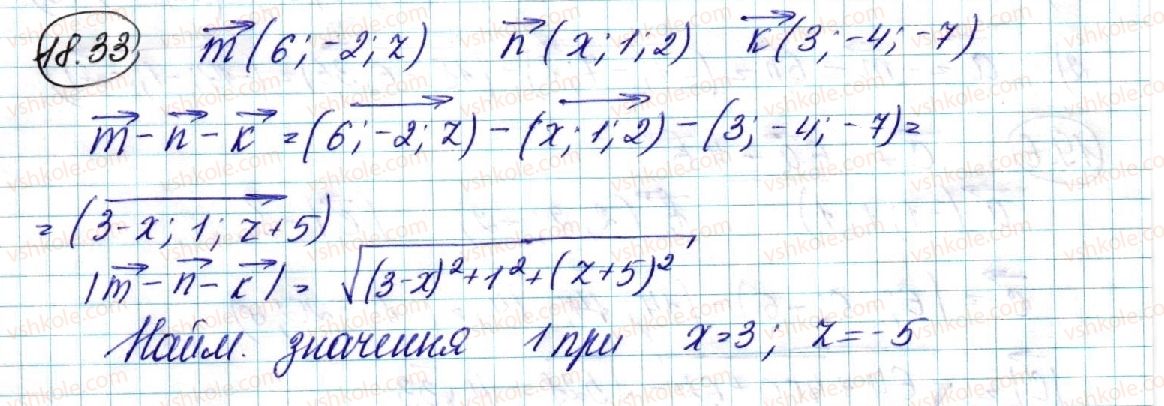 18.33 m⃗(6; -2; z) n⃗(x; 1; 2) k⃗(3; -4; -7)
m⃗ - n⃗ - k⃗ = (6; -2; z) - (x; 1; 2) - (3; -4; -7) =
= (3-x; 1; z+5)
|m⃗ - n⃗ - k⃗| = √((3-x)²+1²+(z+5)²)
Найм. значення 1 при x=3; z=-5